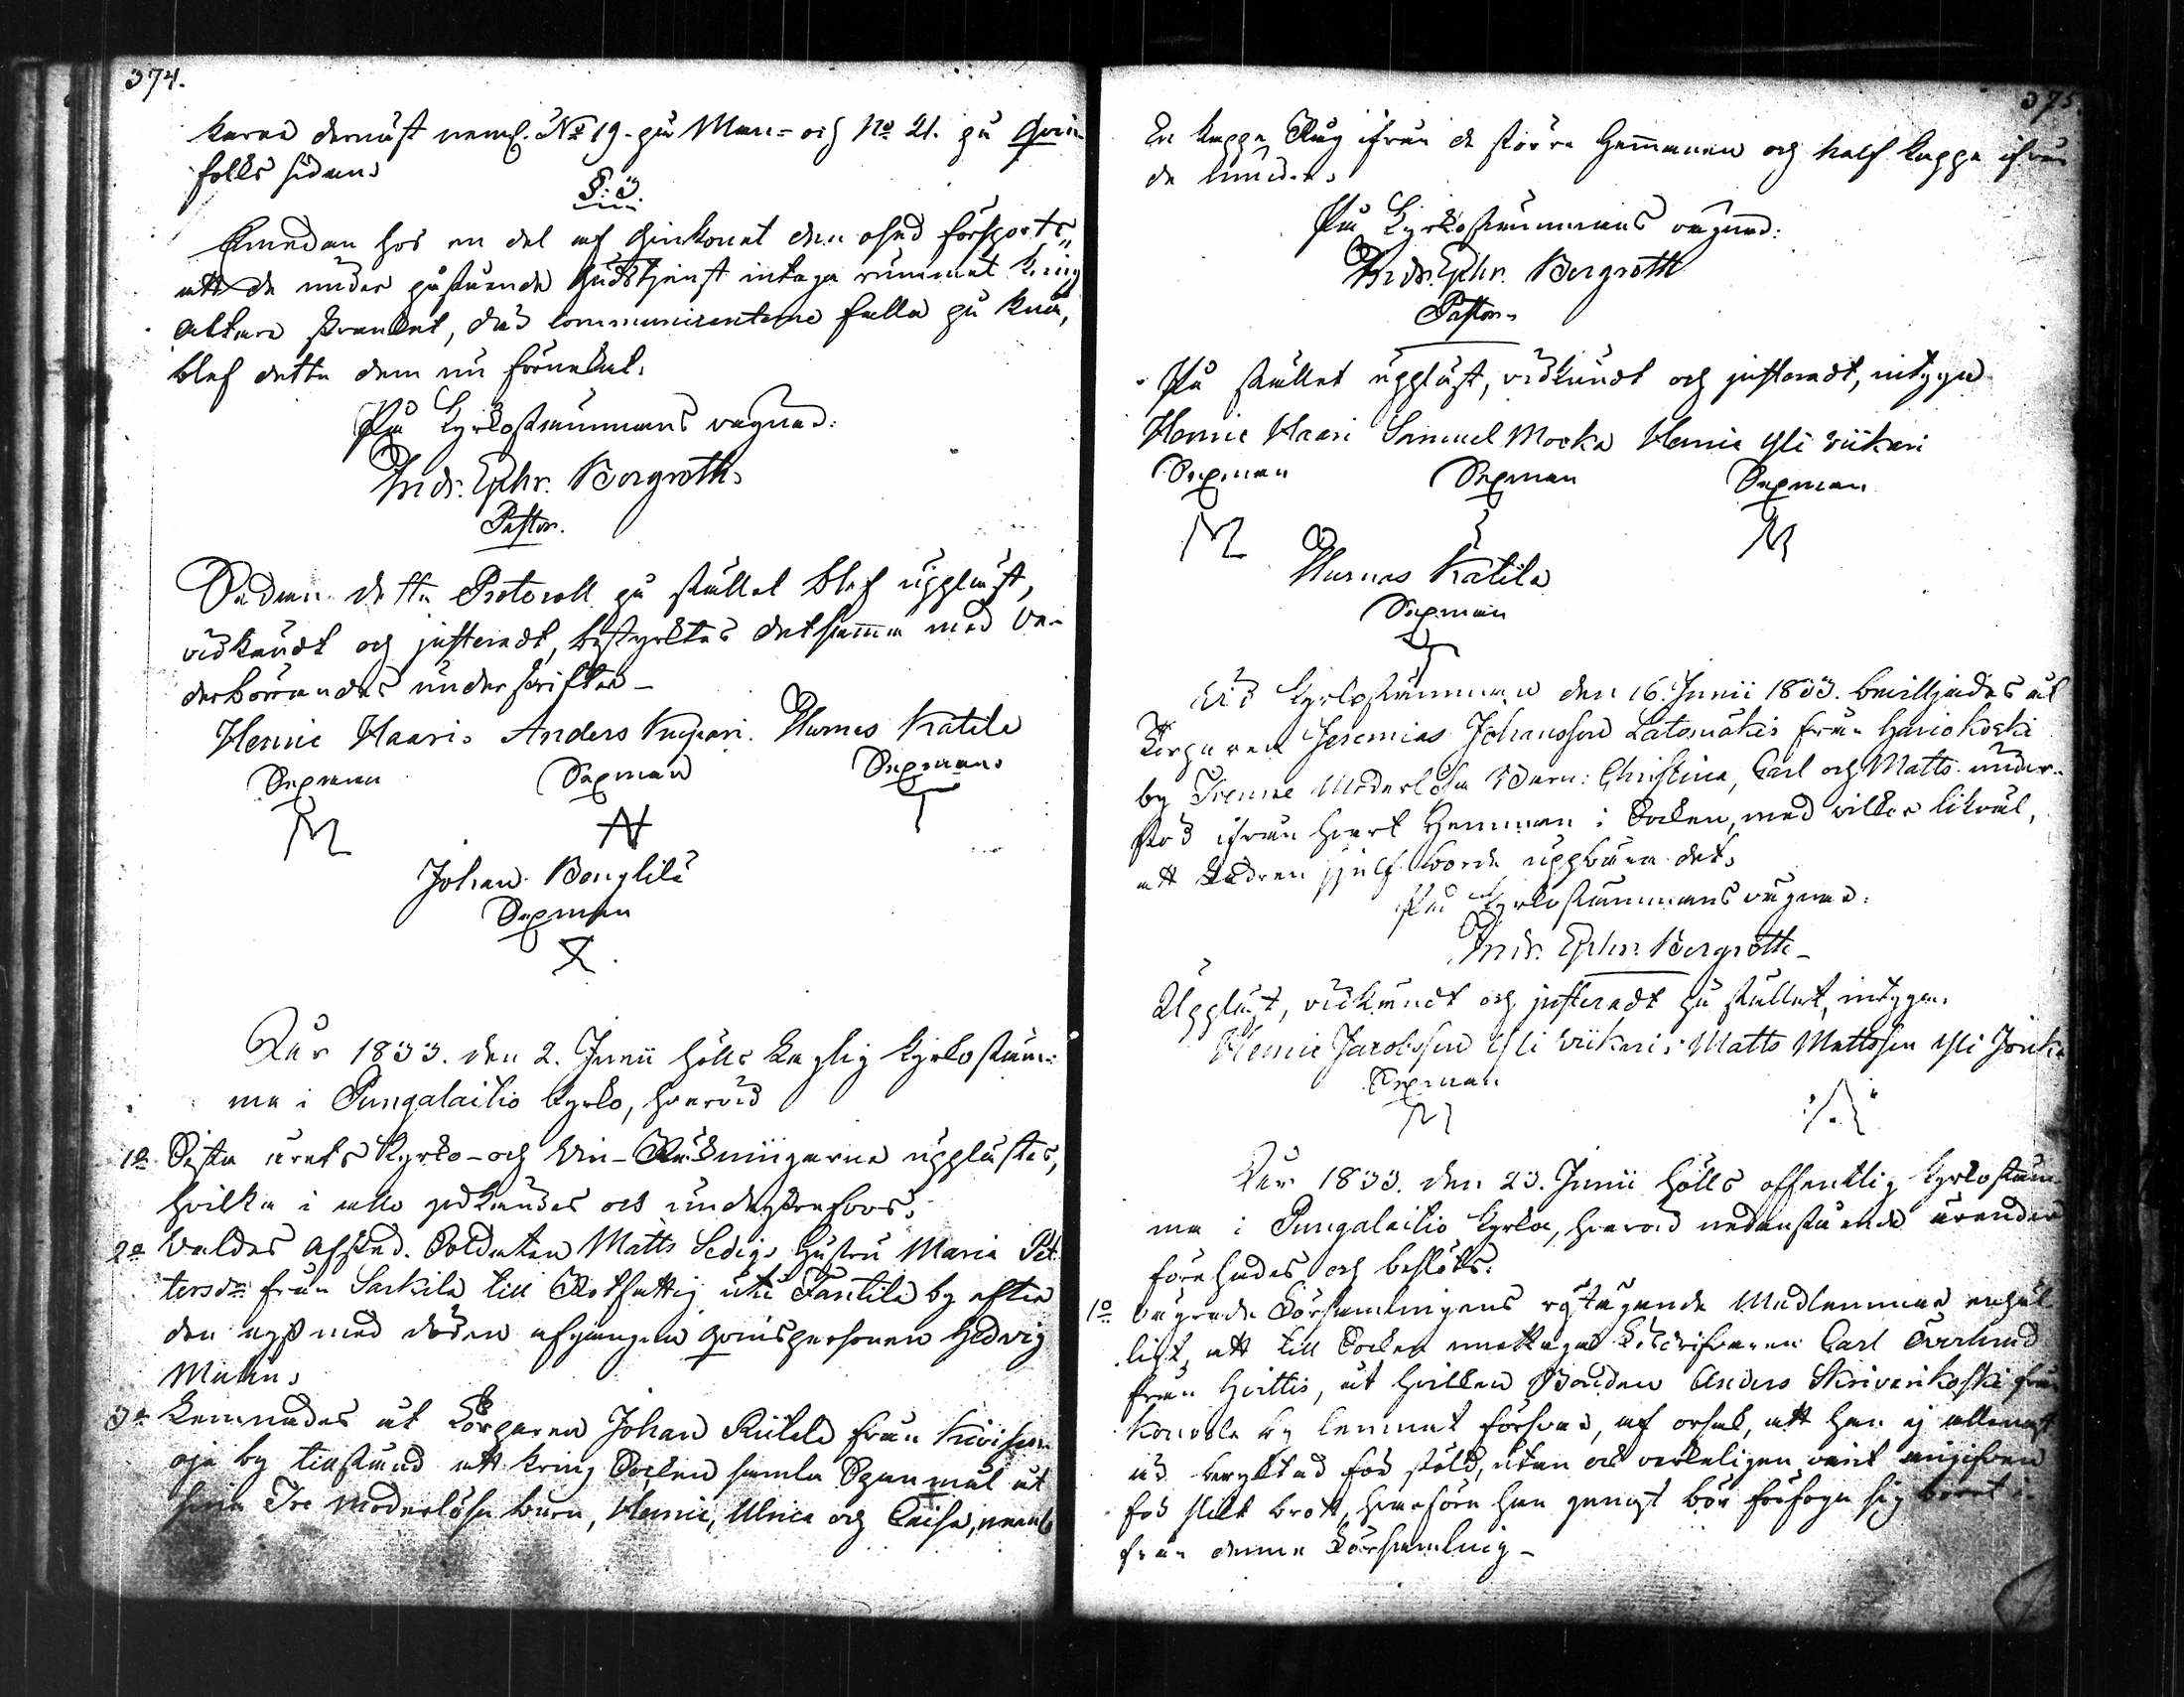 374.
karne dernäst neml. No 19. på Man- och No 21. på Qvin-
folks sidan.
§. 3.
Emedan hos en del af Qvinkonet den osed försports,
att de under påstående Gudstjenst intaga rummet kring
Altare skranket, då communicanterne falla på knä,
blef detta dem nu förnekat.
På Kyrkostämmans vägnar:
Andr. Ephr. Bergroth.
Pastor.
Sedan detta Protocoll på stället blef uppläst,
vidkändt och justeradt, bestyrktes detsamma med ve-
derbörandes underskrifter –
Henric Haari. Anders Knupari. Thomas Katila
Sexman Sexman Sexman.
Johan Bengtilä
Sexman
Åhr 1833. den 2. Junii hölls laglig Kyrkostäm-
ma i Pungalaitio kyrko, hvarvid
1o Sista årets Kyrko- och Vin-Räkningarne upplästes,
hvilka i allo godkändes och underskrefvos.
2o Valdes Afsked. Soldaten Matts Sedigs Hustru Maria Pet-
tersdr från Sarkila till Rotfattig uti Tantila by efter
den nyss med döden afgångna qvinspersonen Hedvig
Malin.
3o Lemnades åt Torparen Johan Riitilä från Kivisen-
oja by tillstånd att kring Socken samla Spanmål åt
sina Tre moderlösa barn, Henric, Ulrica och Caisa, neml.
375.
En kappe Råg ifrån de större Hemmanen och half kappe ifrån
de mindre.
På Kyrkostämmans vägnar:
Andr. Ephr. Bergroth
Pastor.
På stället uppläst, vidkändt och justeradt, intyga
Henric Haari Samuel Mocka Henric Yli Viikari
Sexman Sexman Sexman
Thomas Katila
Sexman
Vid Kyrkostämman den 16. Junii 1833. beviljades åt
Torparen Jeremias Johansson Latomäki från Hariokoski
by Trenne Moderlösa Barn: Christina, Carl och Matts under-
stöd ifrån hvart Hemman i Socken, med vilkor likväl,
att Fadren sjelf borde uppbära det.
På Kyrkostämmans vägnar:
Andr. Ephr. Bergroth –
Uppläst, vidkändt och justeradt på stället, intyga.
Henric Jacobsson Yli Viikari. Matts Mattsson Yli Jonk
Sexman.
Åhr 1833. den 23. Junii hölls offentlig Kyrkostäm-
ma i Pungalaitio Kyrka, hvarvid nedanstående ärender
förehades och beslöts:
1o vägrade Församlingens röstägande Medlemmar enhäl-
ligt, att till Socken emottaga Carl Överlund
från Hvittis, åt hvilken Bonden Anders Skrivarikoski från
by lemnat försvar, af orsak, att han ej allenast
är beryktad för stöld, utan ock verkeligen varit angifven
för slikt brott, hvarföre han genast bör förfoga sig bort i-
från denna Församling –